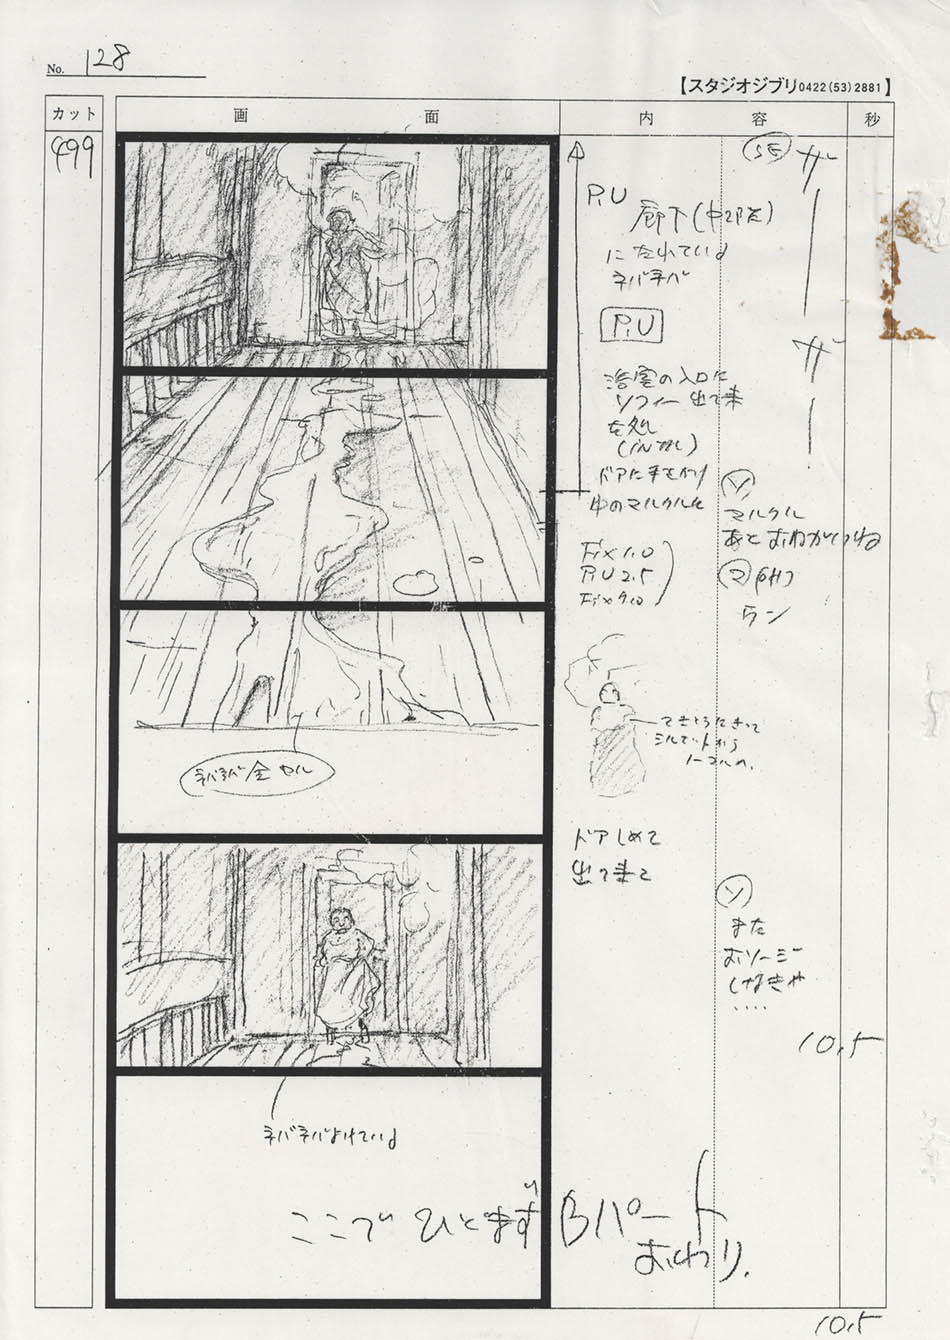 No. 128
【スタジオジブリ0422(53)2881】
カット
画面
内容
秒
499
P.U
廊下(中2階)
にたれている
ネバネバ
P.U
浴室の入口に
ソフィー出て来
ドアに手をかけ
中のマルクルに
Fix 1.0
P.U 2.5
SE
ザー
ザー
ソ
マルクル
あと おねがいね
マ
ウン
ネバネバ全セル
シルエットから
ノーマルへ
ドアしめて
出て来て
ソ
また
おソージ
しなきゃ
‥‥
10.5
ネバネバよけている
ここでひとまず Bパート
おわり.
10.5